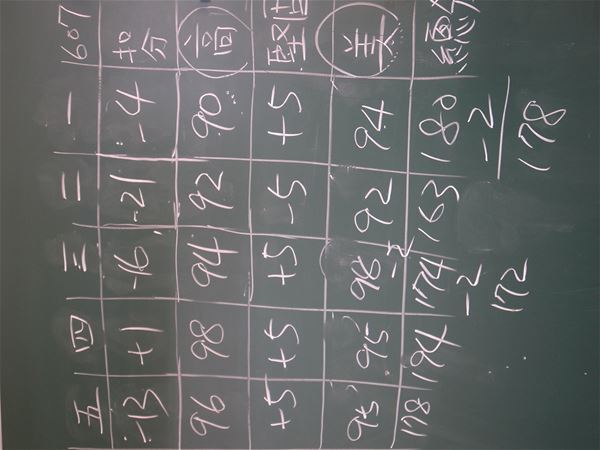 五 四 三 二 一 607
-13 +1 -16 -21 -4 扣分
96 98 94 92 90
+5 +5 +5 -5 +5
95 95 98 92 94 美
-2
178 194 174 163 180
-2 -2
172 178